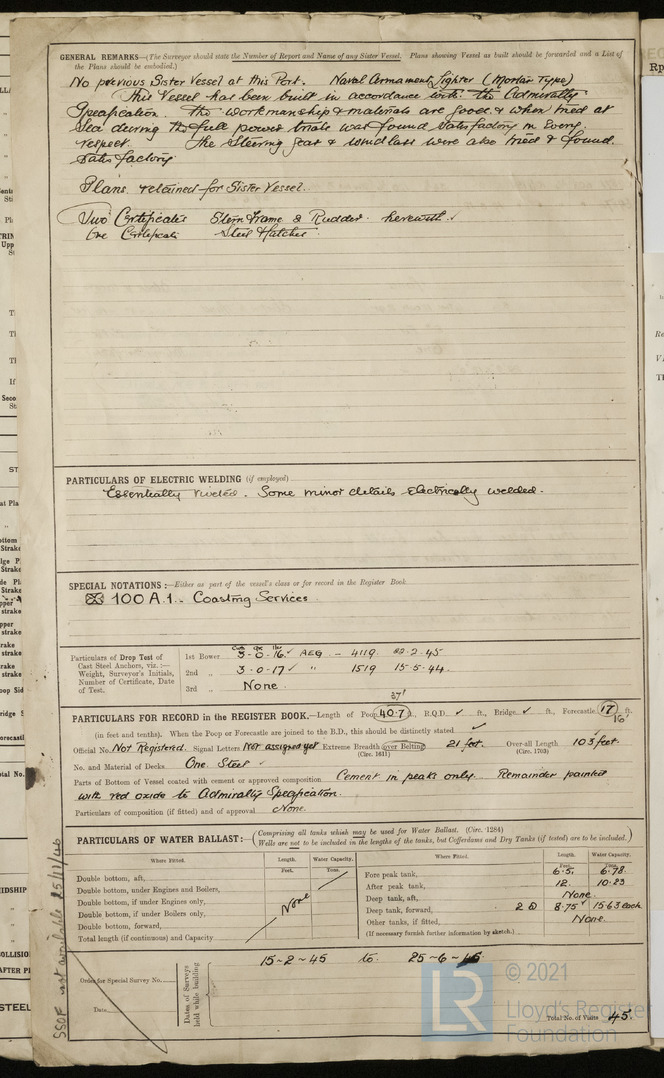 GENERAL REMARKS—(The Surveyor should state the Number of Report and Name of any Sister Vessel. Plans showing Vessel as built should be forwarded and a List of
the Plans should be embodied.)
No previous Sister Vessel at this Port. Naval Armament Lighter (Mortar Type)
This Vessel has been built in accordance with the Admiralty
Specification. The workmanship & materials are good & when tried at
Sea during the full power trials was found satisfactory in every
respect. The Steering gear & windlass were also tried & found
satisfactory
Plans retained for Sister Vessel.
Two Certificates Stern frame & Rudder herewith ✓
One Certificate Steel Hatches
PARTICULARS OF ELECTRIC WELDING (if employed)
Essentially riveted. Some minor details electrically welded.
SPECIAL NOTATIONS:—Either as part of the vessel's class or for record in the Register Book
100 A.1. Coasting Services
Particulars of Drop Test of
Cast Steel Anchors, viz.:—
Weight, Surveyor's Initials,
Number of Certificate, Date
of Test.
1st Bower 3-0-16 ✓ AEG - 4119 2.45
2nd „ 3-0-17 ✓ " 1519 15-5-44.
3rd „ None.
37'
PARTICULARS FOR RECORD in the REGISTER BOOK.—Length of Poop 40.7 ft., R.Q.D. ✓ ft., Bridge ✓ ft., Forecastle 17 ft.
16'
(in feet and tenths). When the Poop or Forecastle are joined to the B.D., this should be distinctly stated ✓
Official No. Not Registered. Signal Letters Not assigned yet Extreme Breadth over Belting 21 feet. Over-all Length 103 feet.
(Circ. 1611) (Circ. 1703)
No. and Material of Decks One Steel ✓
Parts of Bottom of Vessel coated with cement or approved composition Cement in peaks only. Remainder painted
with red oxide to Admiralty Specification.
Particulars of composition (if fitted) and of approval None.
PARTICULARS OF WATER BALLAST:— (Comprising all tanks which may be used for Water Ballast. (Circ. 1284)
Wells are not to be included in the lengths of the tanks, but Cofferdams and Dry Tanks (if tested) are to be included.)
Where Fitted. Length. Water Capacity. Where Fitted. Length. Water Capacity.
Feet. Tons. Feet. Tons.
Double bottom, aft,
Double bottom, under Engines and Boilers,
Double bottom, if under Engines only,
Double bottom, if under Boilers only,
Double bottom, forward,
Total length (if continuous) and Capacity
None
Fore peak tank, 6.5 6.78
After peak tank, 12. 10.23
Deep tank, aft, None
Deep tank, forward, 8.75 ✓ 15.63 each
Other tanks, if fitted, None
(If necessary furnish further information by sketch.)
15-2-45 to 25-6-45
Order for Special Survey No.
Date
Dates of Surveys
held while building
Total No. of Visits 45.
SSOF not available 25/11/46
© 2021
LR
Lloyd's Register
Foundation